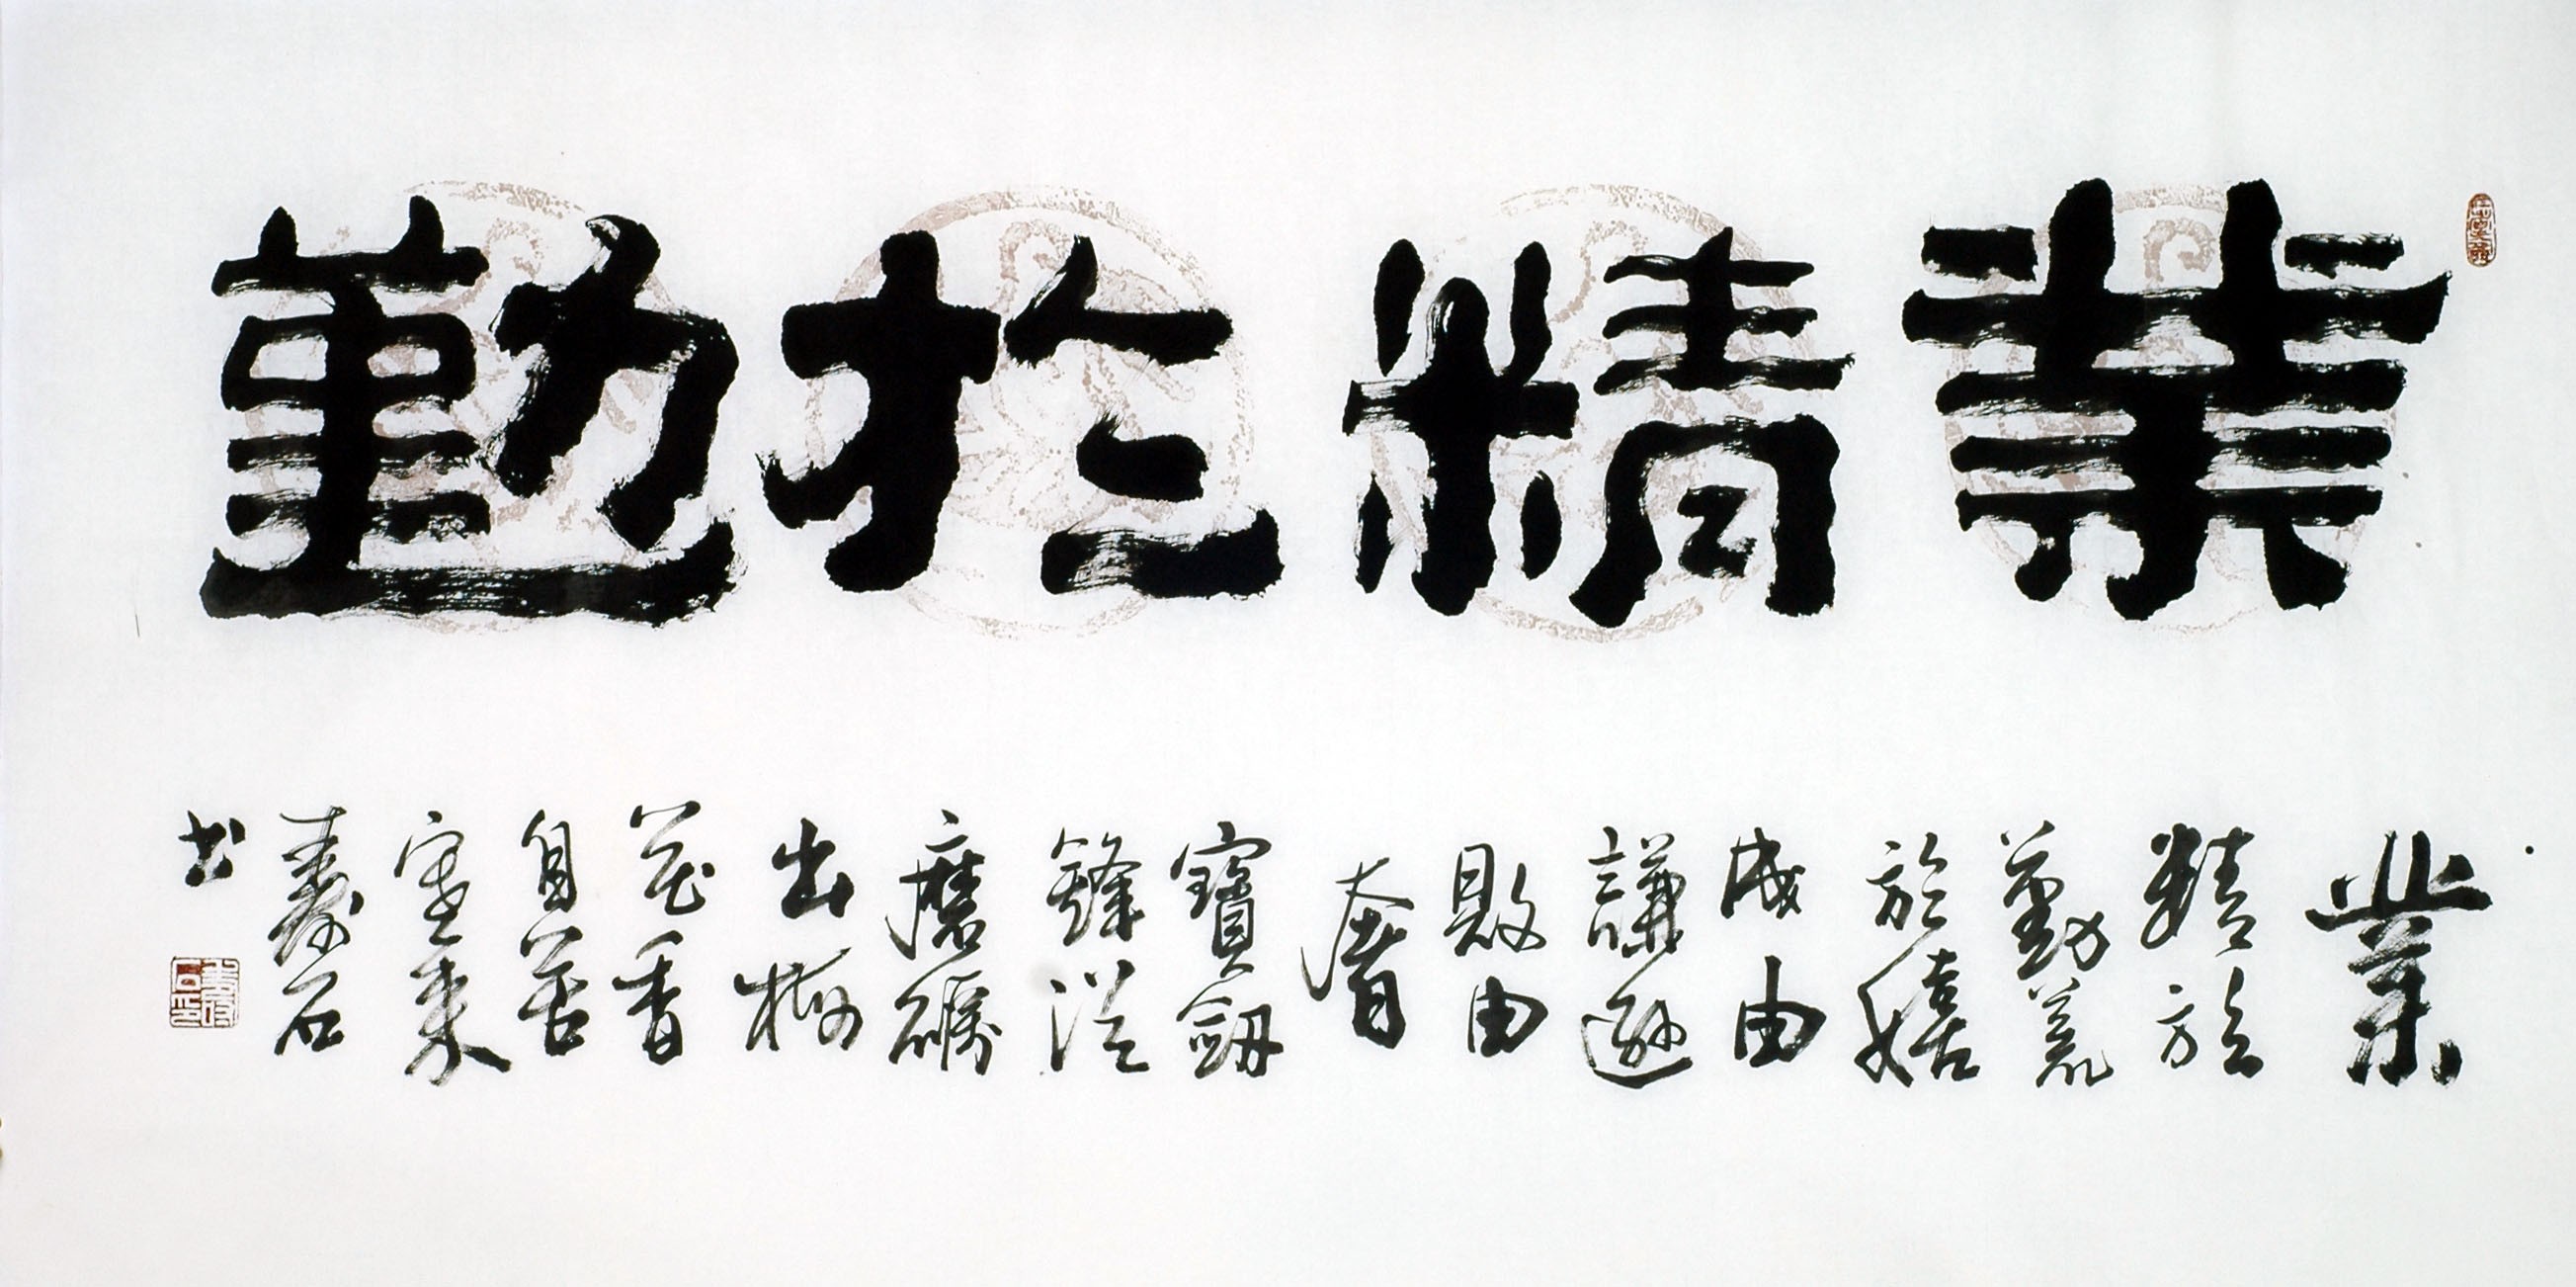 業精於勤
業
精於
勤荒
於嬉
成由
謙遜
敗由
奢
寶劒
鋒從
磨礪
出梅
花香
自苦
寒來
壽石
書